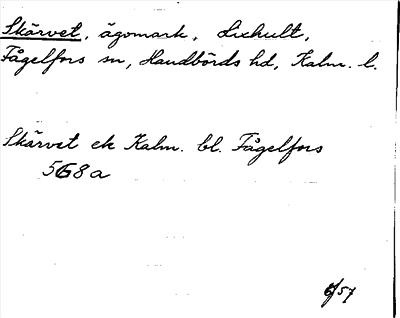 Skärvet, ägomark, Lixhult,
Fågelfors sn, Handbörds hd, Kalm. l.
Skärvet ek Kalm. bl. Fågelfors
568a
6/57